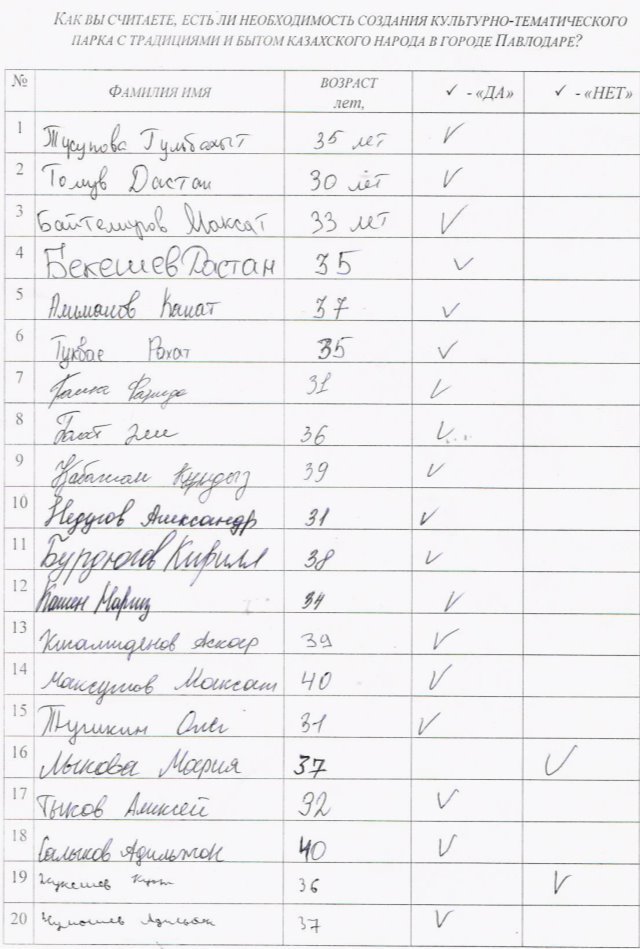 КАК ВЫ СЧИТАЕТЕ, ЕСТЬ ЛИ НЕОБХОДИМОСТЬ СОЗДАНИЯ КУЛЬТУРНО-ТЕМАТИЧЕСКОГО
ПАРКА С ТРАДИЦИЯМИ И БЫТОМ КАЗАХСКОГО НАРОДА В ГОРОДЕ ПАВЛОДАРЕ?
№ ФАМИЛИЯ ИМЯ ВОЗРАСТ лет, ✓ - «ДА» ✓ - «НЕТ»
1 Тусупова Гульбахыт 35 лет ✓
2 Дастан 30 лет ✓
3 Байтемиров Максат 33 лет ✓
4 Бекешев Дастан 35 ✓
5 Канат 37 ✓
6 Рахат 35 ✓
7 Фарида 31 ✓
8 36 ✓
9 Кундыз 39 ✓
10 Недугов Александр 31 ✓
11 Бурдюгов Кирилл 38 ✓
12 34 ✓
13 Аскар 39 ✓
14 Максутов Максат 40 ✓
15 Олег 31 ✓
16 Лыкова Мария 37 ✓
17 Тыков Алексей 32 ✓
18 Салыков Адильжан 40 ✓
19 36 ✓
20 37 ✓